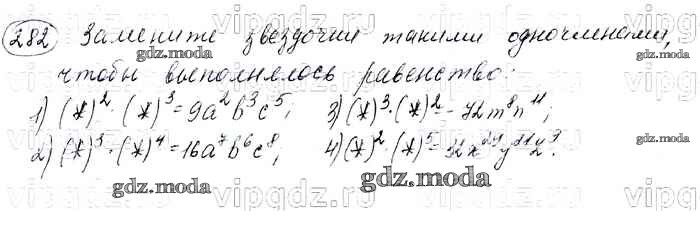 282 Замените звездочки такими одночленами,
чтобы выполнялось равенство:
1) (*)² · (*)³ = 9a²b³c⁵; 3) (*)³ · (*)² = -72m⁸n¹¹;
2) (*)³ · (*)⁴ = 16a⁷b⁶c⁸; 4) (*)² · (*)⁵ = 32x²⁹y²¹z⁹.
gdz.moda
gdz.moda
gdz.moda
gdz.moda
vipgdz.ru